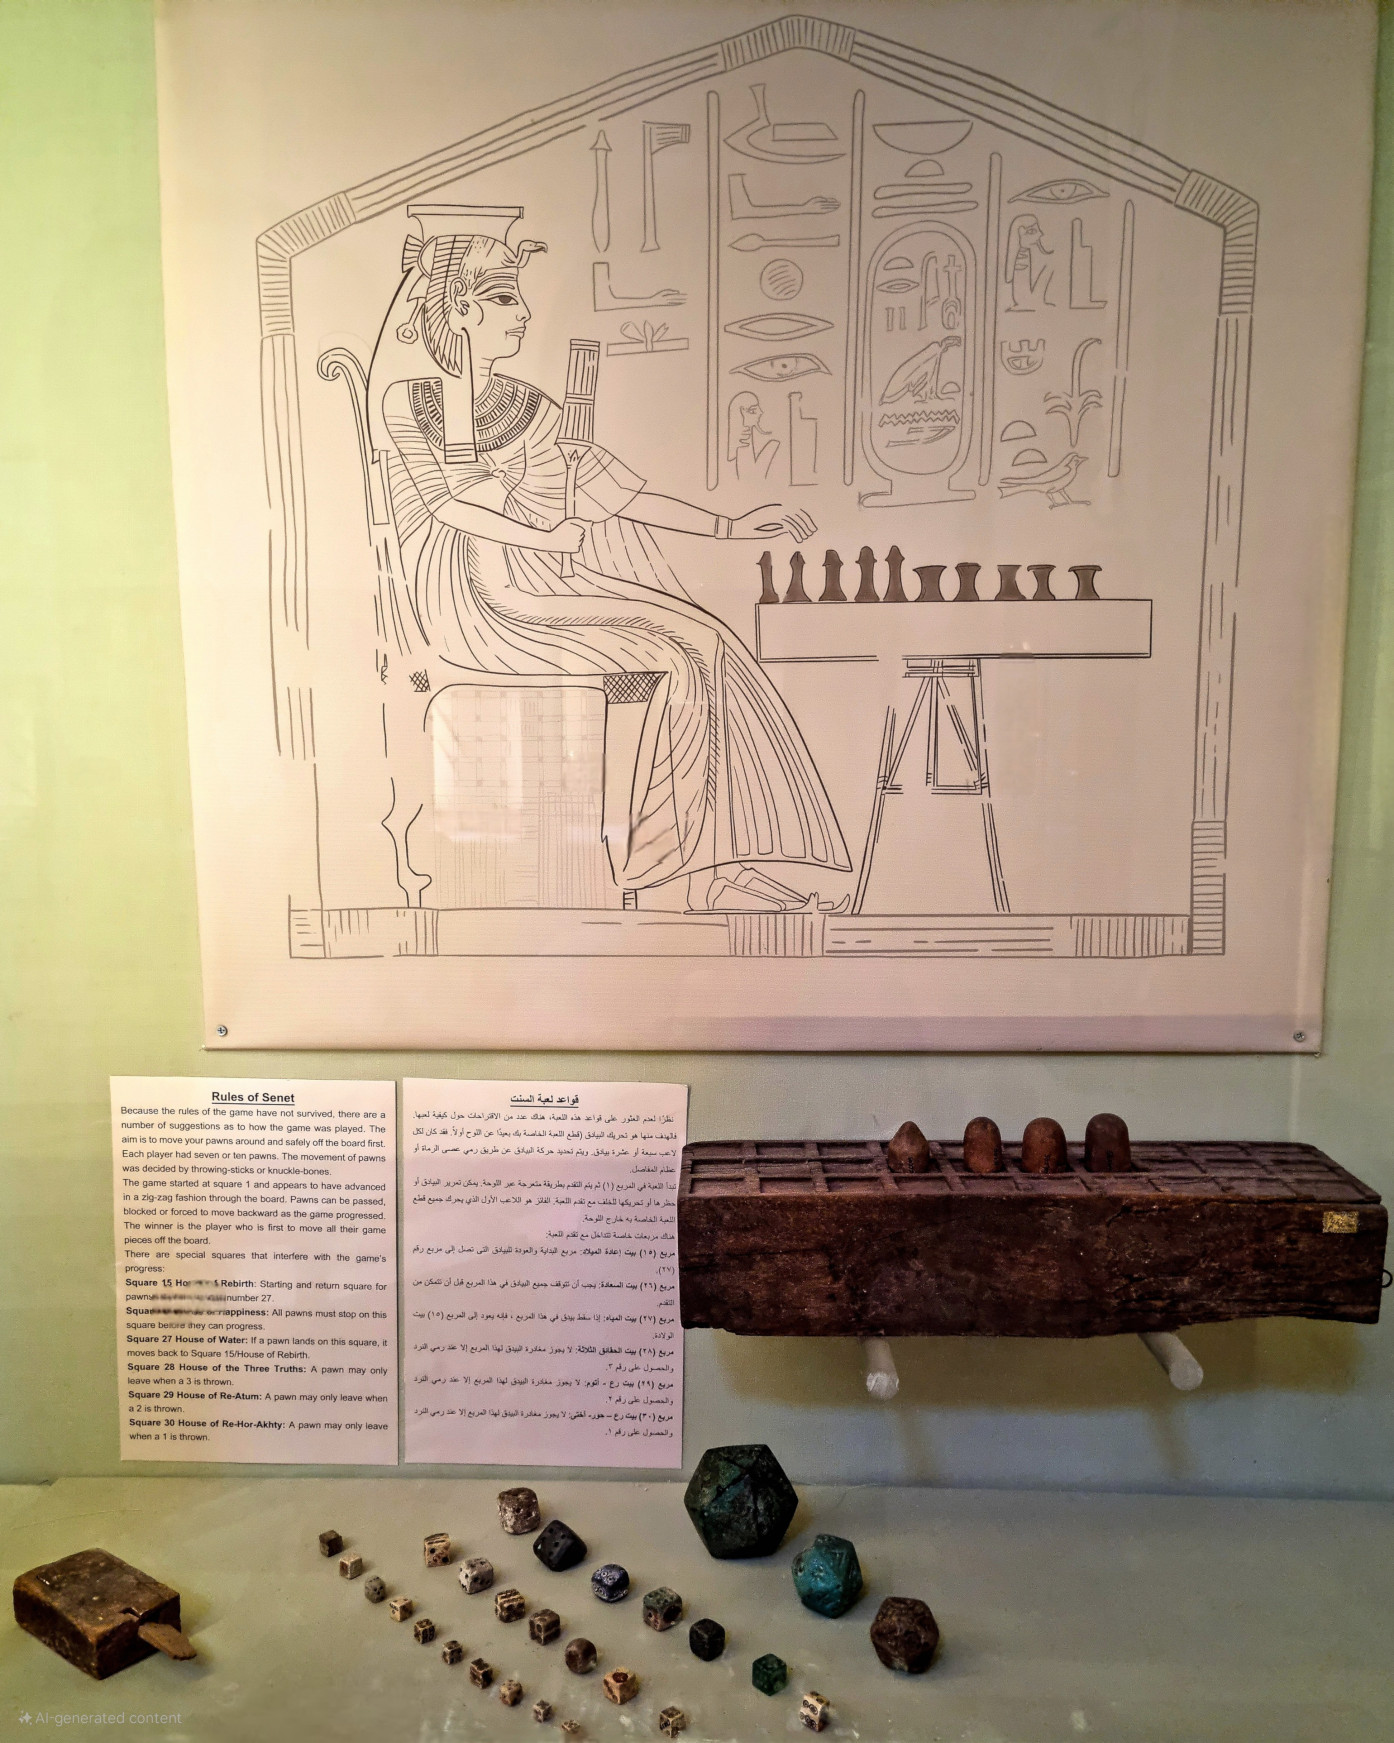 Rules of Senet
Because the rules of the game have not survived, there are a
number of suggestions as to how the game was played. The
aim is to move your pawns around and safely off the board first.
Each player had seven or ten pawns. The movement of pawns
was decided by throwing-sticks or knuckle-bones.
The game started at square 1 and appears to have advanced
in a zig-zag fashion through the board. Pawns can be passed,
blocked or forced to move backward as the game progressed.
The winner is the player who is first to move all their game
pieces off the board.
There are special squares that interfere with the game's
progress:
Square 15 Rebirth: Starting and return square for
number 27.
Happiness: All pawns must stop on this
square before they can progress.
Square 27 House of Water: If a pawn lands on this square, it
moves back to Square 15/House of Rebirth.
Square 28 House of the Three Truths: A pawn may only
leave when a 3 is thrown.
Square 29 House of Re-Atum: A pawn may only leave when
a 2 is thrown.
Square 30 House of Re-Hor-Akhty: A pawn may only leave
when a 1 is thrown.
قواعد لعبة السنت
نظرًا لعدم العثور على قواعد هذه اللعبة، هناك عدد من الاقتراحات حول كيفية لعبها.
فالهدف منها هو تحريك البيادق (قطع اللعبة الخاصة بك بعيدًا عن اللوح أولاً. فقد كان لكل
لاعب سبعة أو عشرة بيادق. ويتم تحديد حركة البيادق عن طريق رمي عصى الرماة أو
عظام المفاصل.
تبدأ اللعبة في المربع (١) ثم يتم التقدم بطريقة متعرجة عبر اللوحة. يمكن تمرير البيادق أو
حظرها أو تحريكها للخلف مع تقدم اللعبة. الفائز هو اللاعب الأول الذي يحرك جميع قطع
اللعبة الخاصة به خارج اللوحة.
هناك مربعات خاصة تتداخل مع تقدم اللعبة:
مربع (١٥) بيت إعادة الميلاد: مربع البداية والعودة للبيادق التى تصل إلى مربع رقم
(٢٧).
مربع (٢٦) بيت السعادة: يجب أن تتوقف جميع البيادق في هذا المربع قبل أن تتمكن من
التقدم.
مربع (٢٧) بيت المياه: إذا سقط بيدق في هذا المربع ، فإنه يعود إلى المربع (١٥) بيت
الولادة.
مربع (٢٨) بيت الحقائق الثلاثة: لا يجوز مغادرة البيدق لهذا المربع إلا عند رمي النرد
والحصول على رقم ٣.
مربع (٢٩) بيت رع - أتوم: لا يجوز مغادرة البيدق لهذا المربع إلا عند رمي النرد
والحصول على رقم ٢.
مربع (٣٠) بيت رع – حور- أختى: لا يجوز مغادرة البيدق لهذا المربع إلا عند رمي النرد
والحصول على رقم ١.
AI-generated content